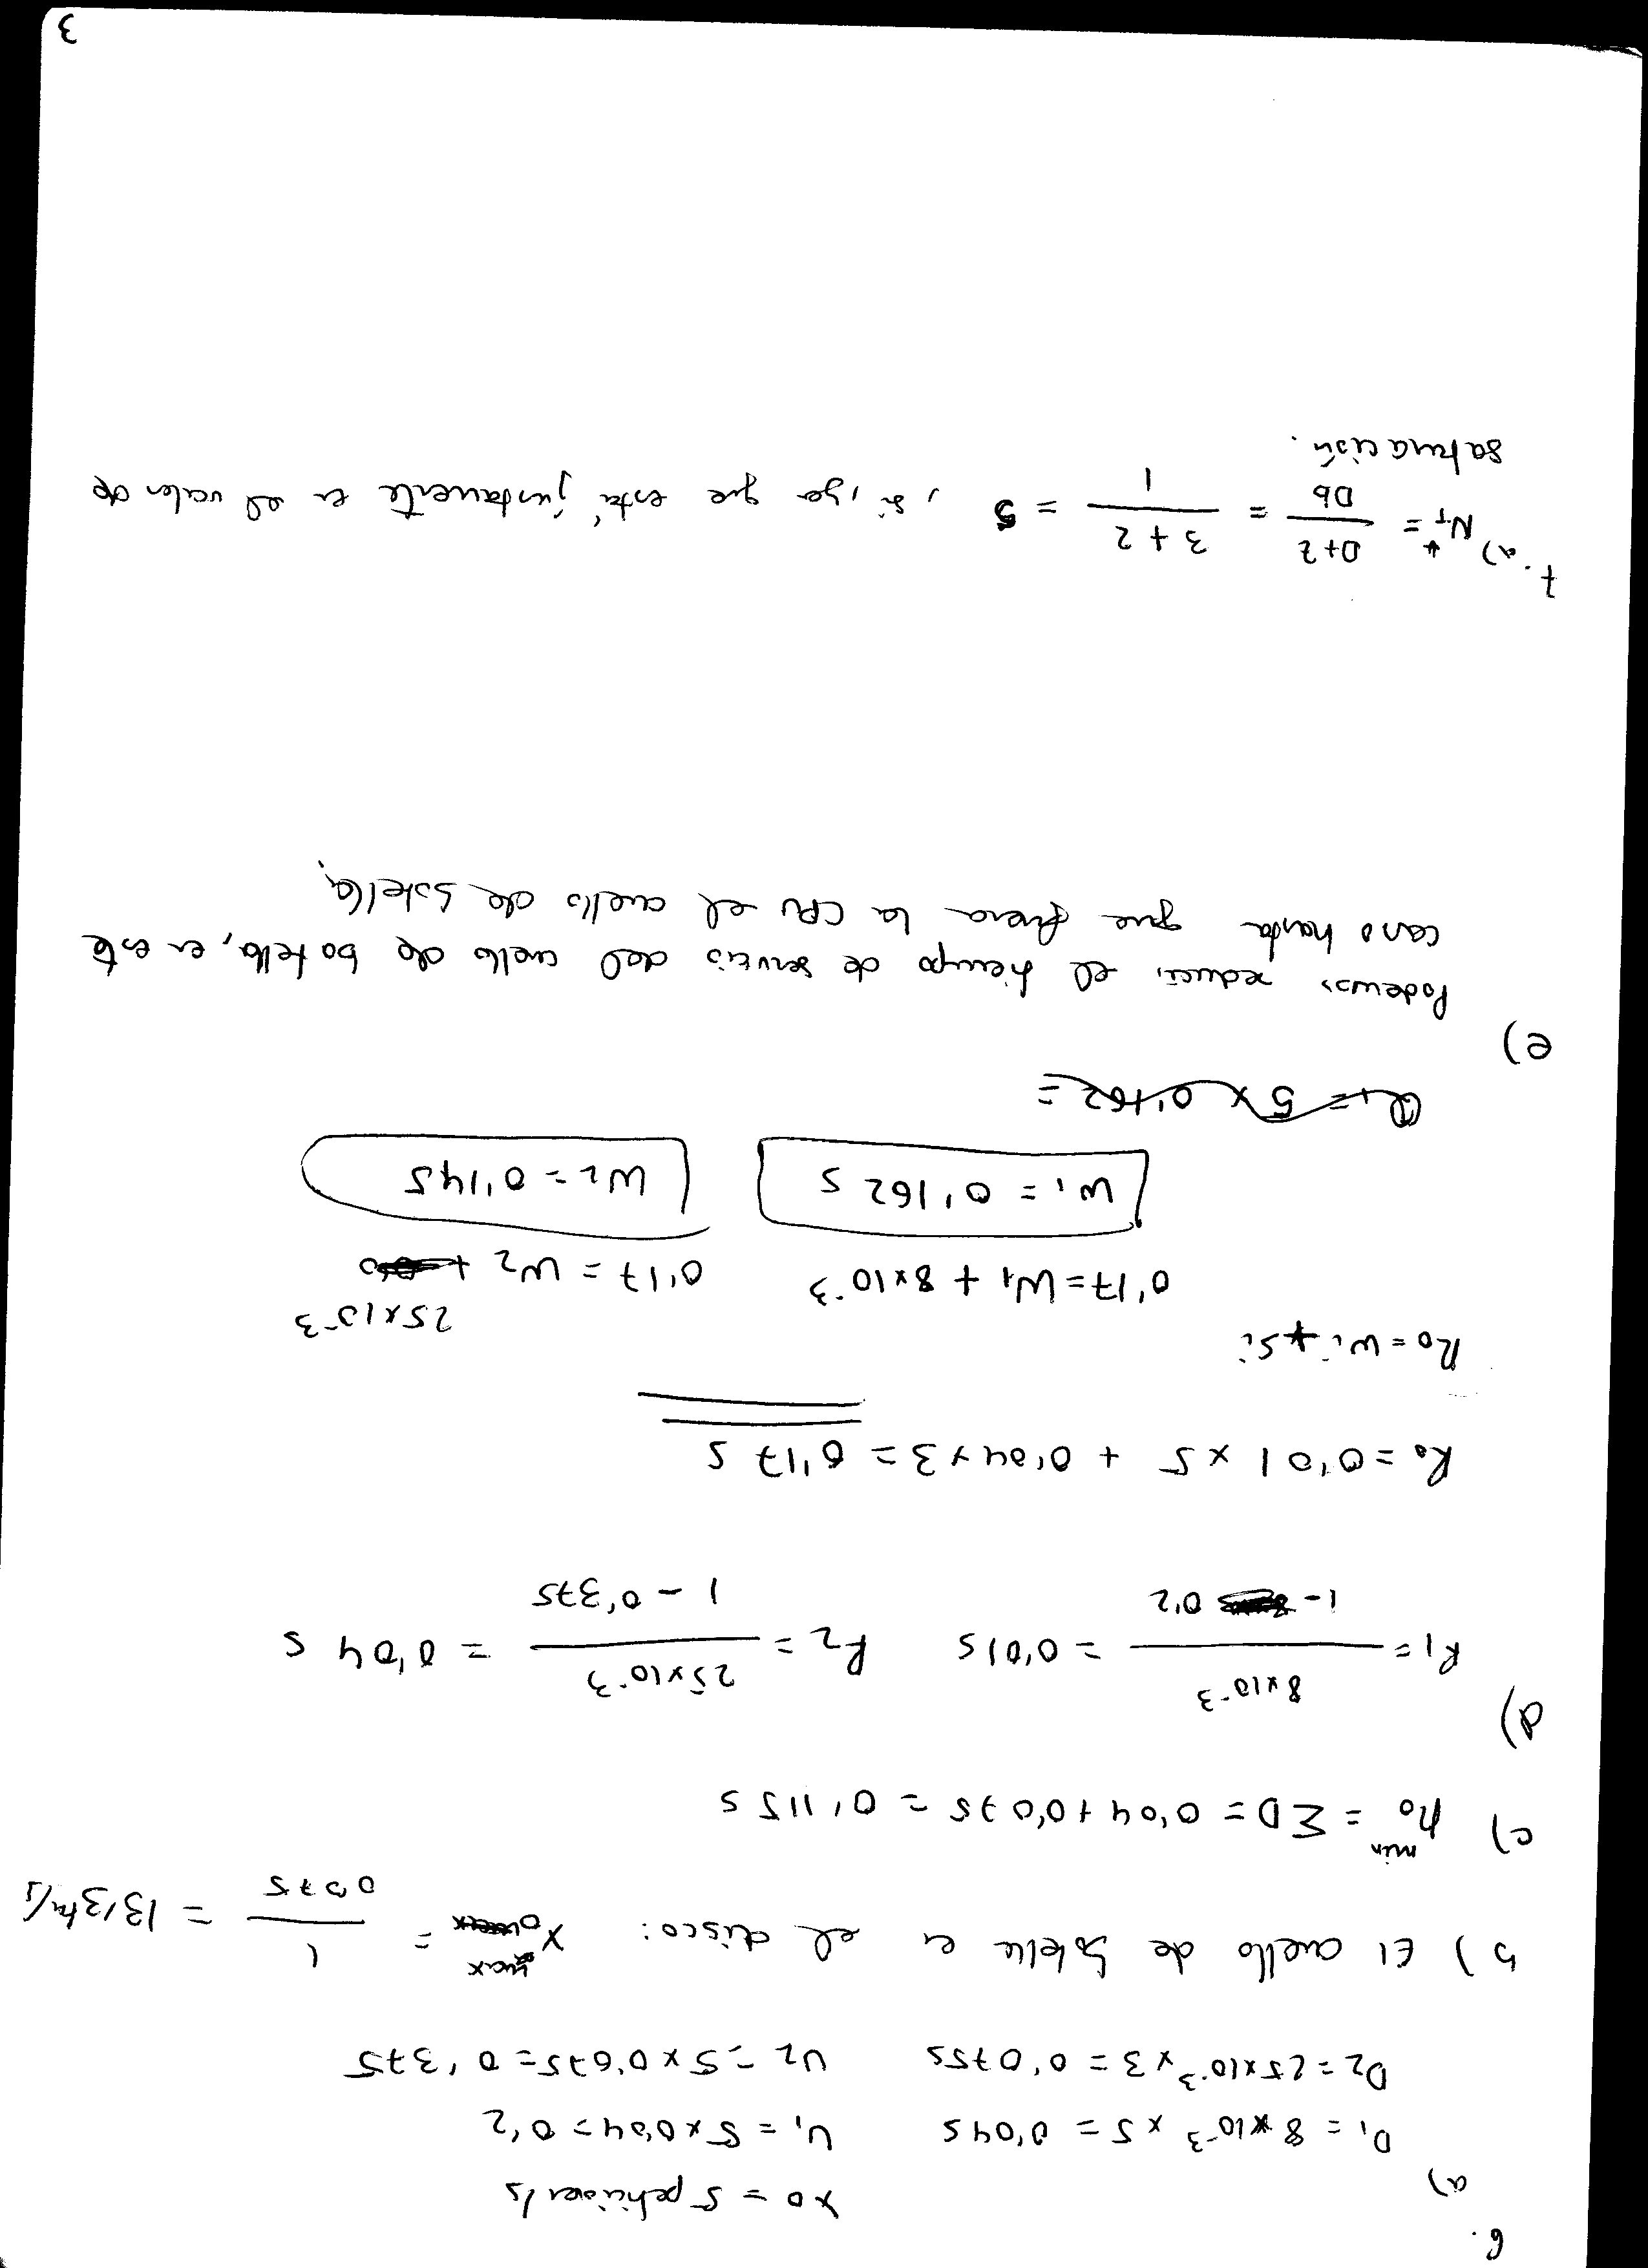 6.
a)
x0 = 5 peticiones/s
D1 = 8x10-3 x 5 = 0'04 s
U1 = 5x0'04 = 0'2
D2 = 25x10-3 x 3 = 0'075s
U2 = 5x0'075 = 0'375
b) El cuello de botella es el disco: X0 max = 1 / 0'075 = 13'3 tr/s
c) R0 min = ΣD = 0'04 + 0'075 = 0'115 s
d)
R1 = 8x10-3 / 1 - 0'2 = 0'01 s
R2 = 25x10-3 / 1 - 0'375 = 0'04 s
R0 = 0'01 x 5 + 0'04 x 3 = 0'17 s
R0 = Wi + Si
0'17 = W1 + 8x10-3
0'17 = W2 + 25x10-3
W1 = 0'162 s
W2 = 0'145
Q1 = 5 x 0'162 =
e)
Podemos reducir el tiempo de servicio del cuello de botella, en este
caso hasta que fuera la CPU el cuello de botella.
7.
a) NT* = D+Z / Db = 3+2 / 1 = 5, si, ya que está justamente en el valor de
saturación.
3